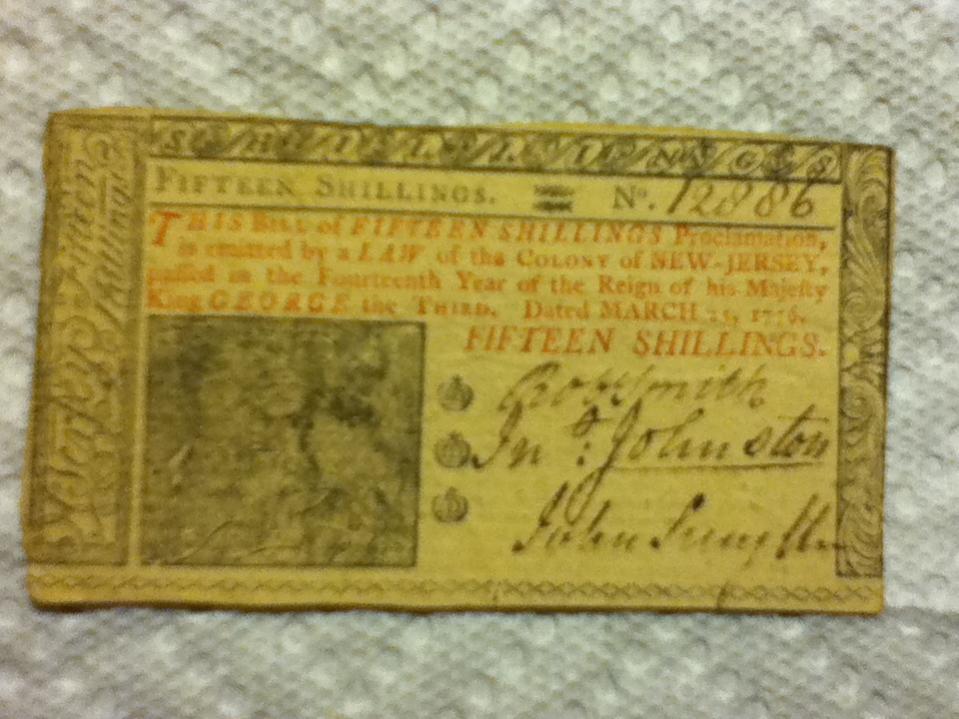 SHILLINGS
FIFTEEN SHILLINGS. No. 12886
THIS Bill of FIFTEEN SHILLINGS Proclamation,
is emitted by a LAW of the COLONY of NEW-JERSEY,
passed in the Fourteenth Year of the Reign of his Majesty
King GEORGE the THIRD. Dated MARCH 25, 1776.
FIFTEEN SHILLINGS.
Smith
Jno: Johnston
John Smyth
Jersey
Fifteen
Shillings